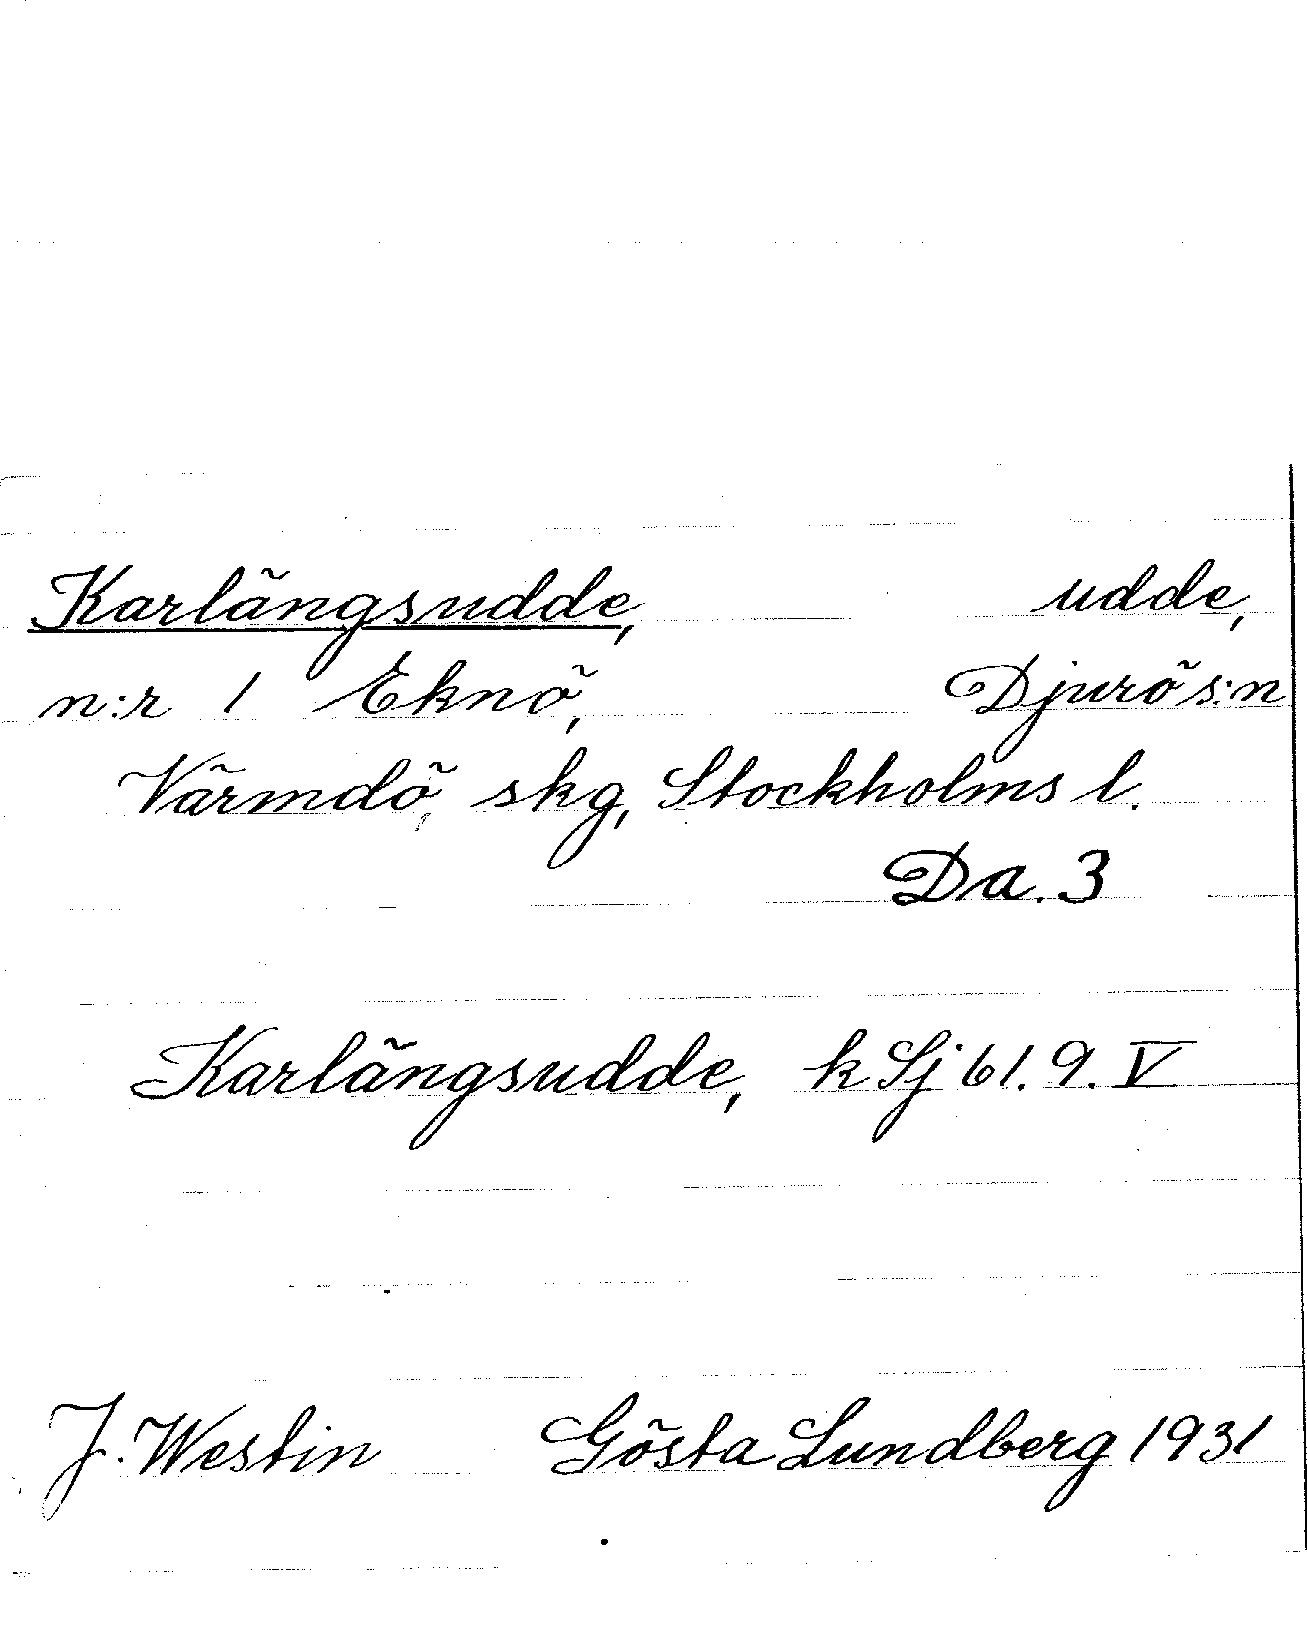 Karlängsudde, udde,
n:r 1 Eknö, Djurö s:n
Värmdö, skg, Stockholms l.
Da. 3
Karlängsudde, k Sj 61. 9. V
J. Westin Gösta Lundberg 1931